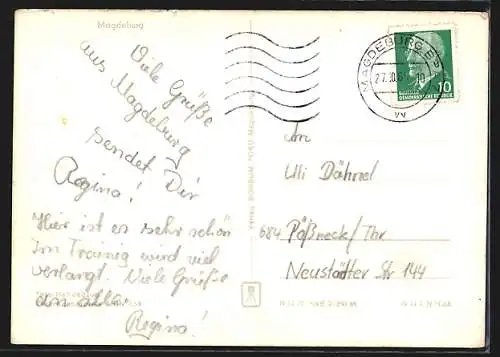 Magdeburg
Viele Grüße
aus Magdeburg
sendet Dir
Regina!
Hier ist es sehr schön
Im Trainig wird viel
verlangt. Viele Grüße
an alle.
Regina!
MAGDEBURG BPA
DEUTSCHE DEMOKRATISCHE REPUBLIK
10
An
Uli Dähnel
684 Pößneck/Thr
Neustädter Str 144